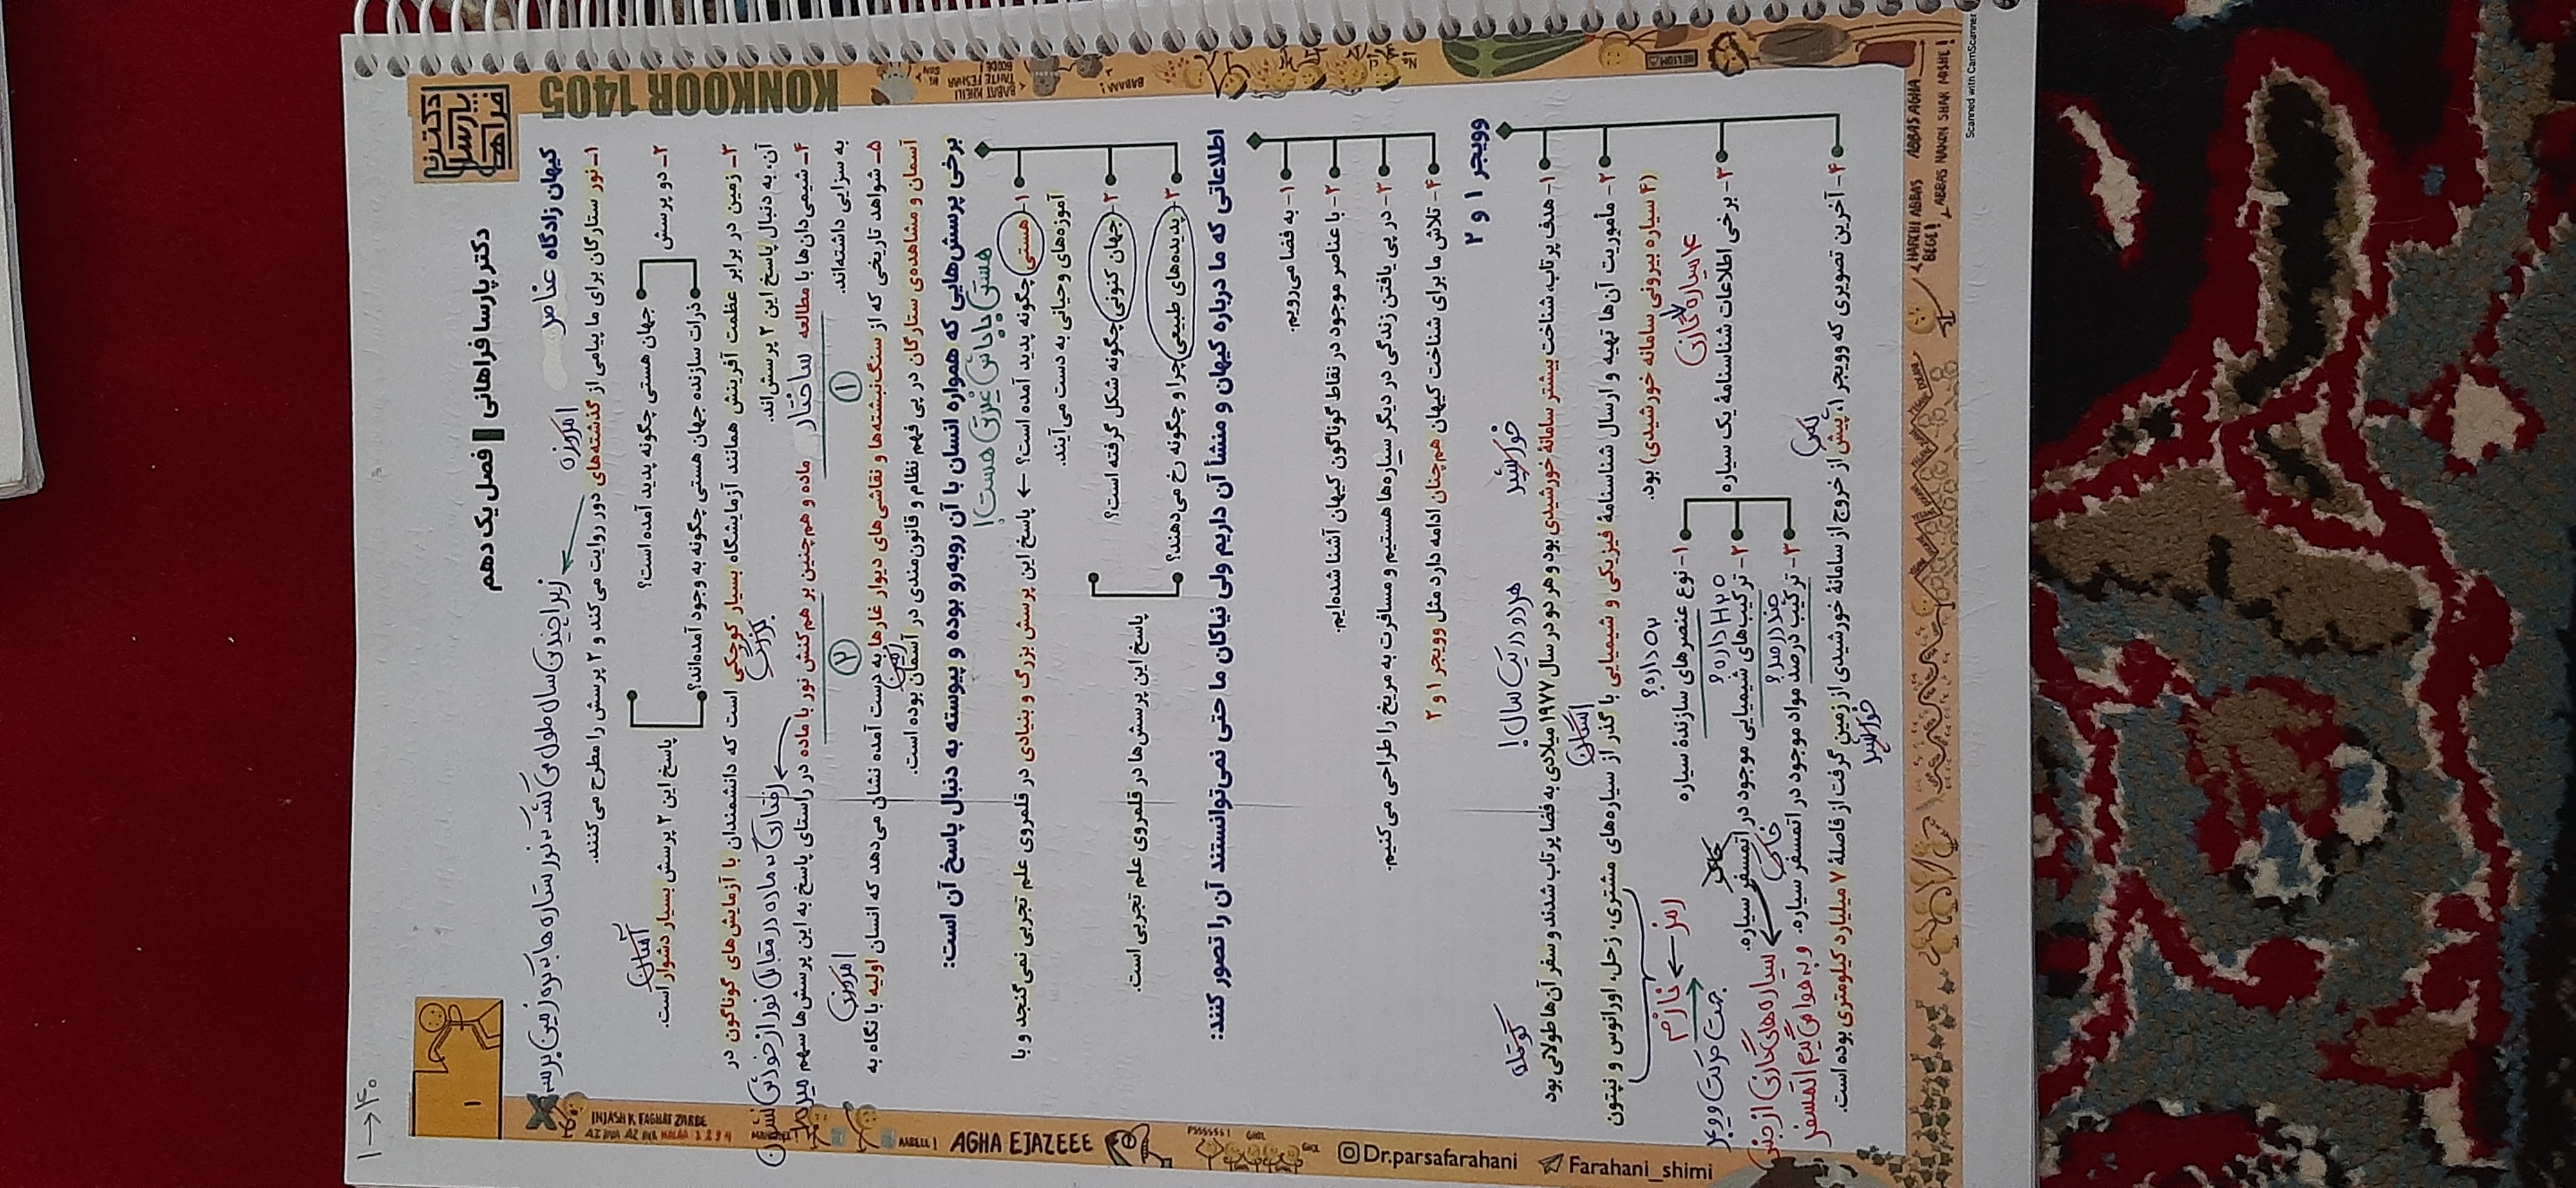 ۱ → ۴۰
دکتر پارسا فراهانی
دکتر پارسا فراهانی | فصل یک دهم
۱
KONKOOR 1405
کیهان زادگاه عناصر
امروزه
زیرا چندین سال طول می‌کشد نور ستاره‌ها به کره زمین برسد
۱- نور ستارگان برای ما پیامی از گذشته‌های دور روایت می‌کند و ۲ پرسش را مطرح می‌کنند.
۲- دو پرسش
جهان هستی چگونه پدید آمده است؟
ذرات سازنده جهان هستی چگونه به وجود آمده‌اند؟
پاسخ این ۲ پرسش بسیار دشوار است.
آسان
۳- زمین در برابر عظمت آفرینش همانند آزمایشگاه بسیار کوچکی است که دانشمندان با آزمایش‌های گوناگون در
آن به دنبال پاسخ این ۲ پرسش‌اند.
بزرگ
۴- شیمی‌دان‌ها با مطالعه ساختار ماده و هم‌چنین بر هم‌کنش نور با ماده در راستای پاسخ به این پرسش‌ها سهم
به سزایی داشته‌اند.
۱
۲
امروزی
۵- شواهد تاریخی که از سنگ‌نبشته‌ها و نقاشی‌های دیوار غارها به دست آمده نشان می‌دهد که انسان اولیه با نگاه به
آسمان و مشاهده‌ی ستارگان در پی فهم نظام و قانون‌مندی در آسمان بوده است.
زمین
برخی پرسش‌هایی که همواره انسان با آن روبه‌رو بوده و پیوسته به دنبال پاسخ آن است:
۱- هستی چگونه پدید آمده است؟ ← پاسخ این پرسش بزرگ و بنیادی در قلمروی علم تجربی نمی‌گنجد و با
آموزه‌های وحیانی به دست می‌آیند.
۲- جهان کنونی چگونه شکل گرفته است؟
۳- پدیده‌های طبیعی چرا و چگونه رخ می‌دهند؟
پاسخ این پرسش‌ها در قلمروی علم تجربی است.
اطلاعاتی که ما درباره کیهان و منشأ آن داریم ولی نیاکان ما حتی نمی‌توانستند آن را تصور کنند:
۱- به فضا می‌رویم.
۲- با عناصر موجود در نقاط گوناگون کیهان آشنا شده‌ایم.
۳- در پی یافتن زندگی در دیگر سیاره‌ها هستیم و مسافرت به مریخ را طراحی می‌کنیم.
۴- تلاش ما برای شناخت کیهان هم‌چنان ادامه دارد مثل وویجر ۱ و ۲
وویجر ۱ و ۲
خورشید
هر دو در یک سال!
کوتاه
۱- هدف پرتاب، شناخت بیشتر سامانهٔ خورشیدی بود و هر دو در سال ۱۹۷۷ میلادی به فضا پرتاب شدند و سفر آن‌ها طولانی بود
۲- مأموریت آن‌ها تهیه و ارسال شناسنامهٔ فیزیکی و شیمیایی با گذر از سیاره‌های مشتری، زحل، اورانوس و نپتون
(۴ سیاره بیرونی سامانه خورشیدی) بود.
۴ سیاره گازی
رمز ←
جهت حرکت وویجر
۳- برخی اطلاعات شناسنامهٔ یک سیاره
۱- نوع عنصرهای سازندهٔ سیاره
O₂ داره؟
۲- ترکیب‌های شیمیایی موجود در اتمسفر سیاره.
H₂O داره؟
۳- ترکیب درصد مواد موجود در اتمسفر سیاره.
چند درصد؟
خاکی
سیاره‌های گازی از جنس
و به هوا می‌گیم اتمسفر
۴- آخرین تصویری که وویجر ۱، پیش از خروج از سامانهٔ خورشیدی از زمین گرفت از فاصلهٔ ۷ میلیارد کیلومتری بوده است.
پس
خورشید
INJASH K FAGHAT ZARDE
AGHA EJAZEEE
Dr.parsafarahani
Farahani_shimi
BABAAA!
HARCHI ABBAS AGHA BEGE!
ABBAS NANON SHAR MISHE!
Scanned with CamScanner